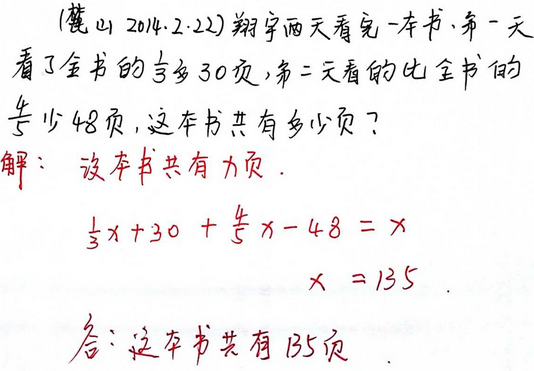 (麓山 2014.2.22) 翔宇两天看完一本书.第一天
看了全书的1/3多30页,第二天看的比全书的
4/5少48页,这本书共有多少页?
解: 设本书共有x页.
1/3x+30+4/5x-48=x
x=135.
答:这本书共有135页.